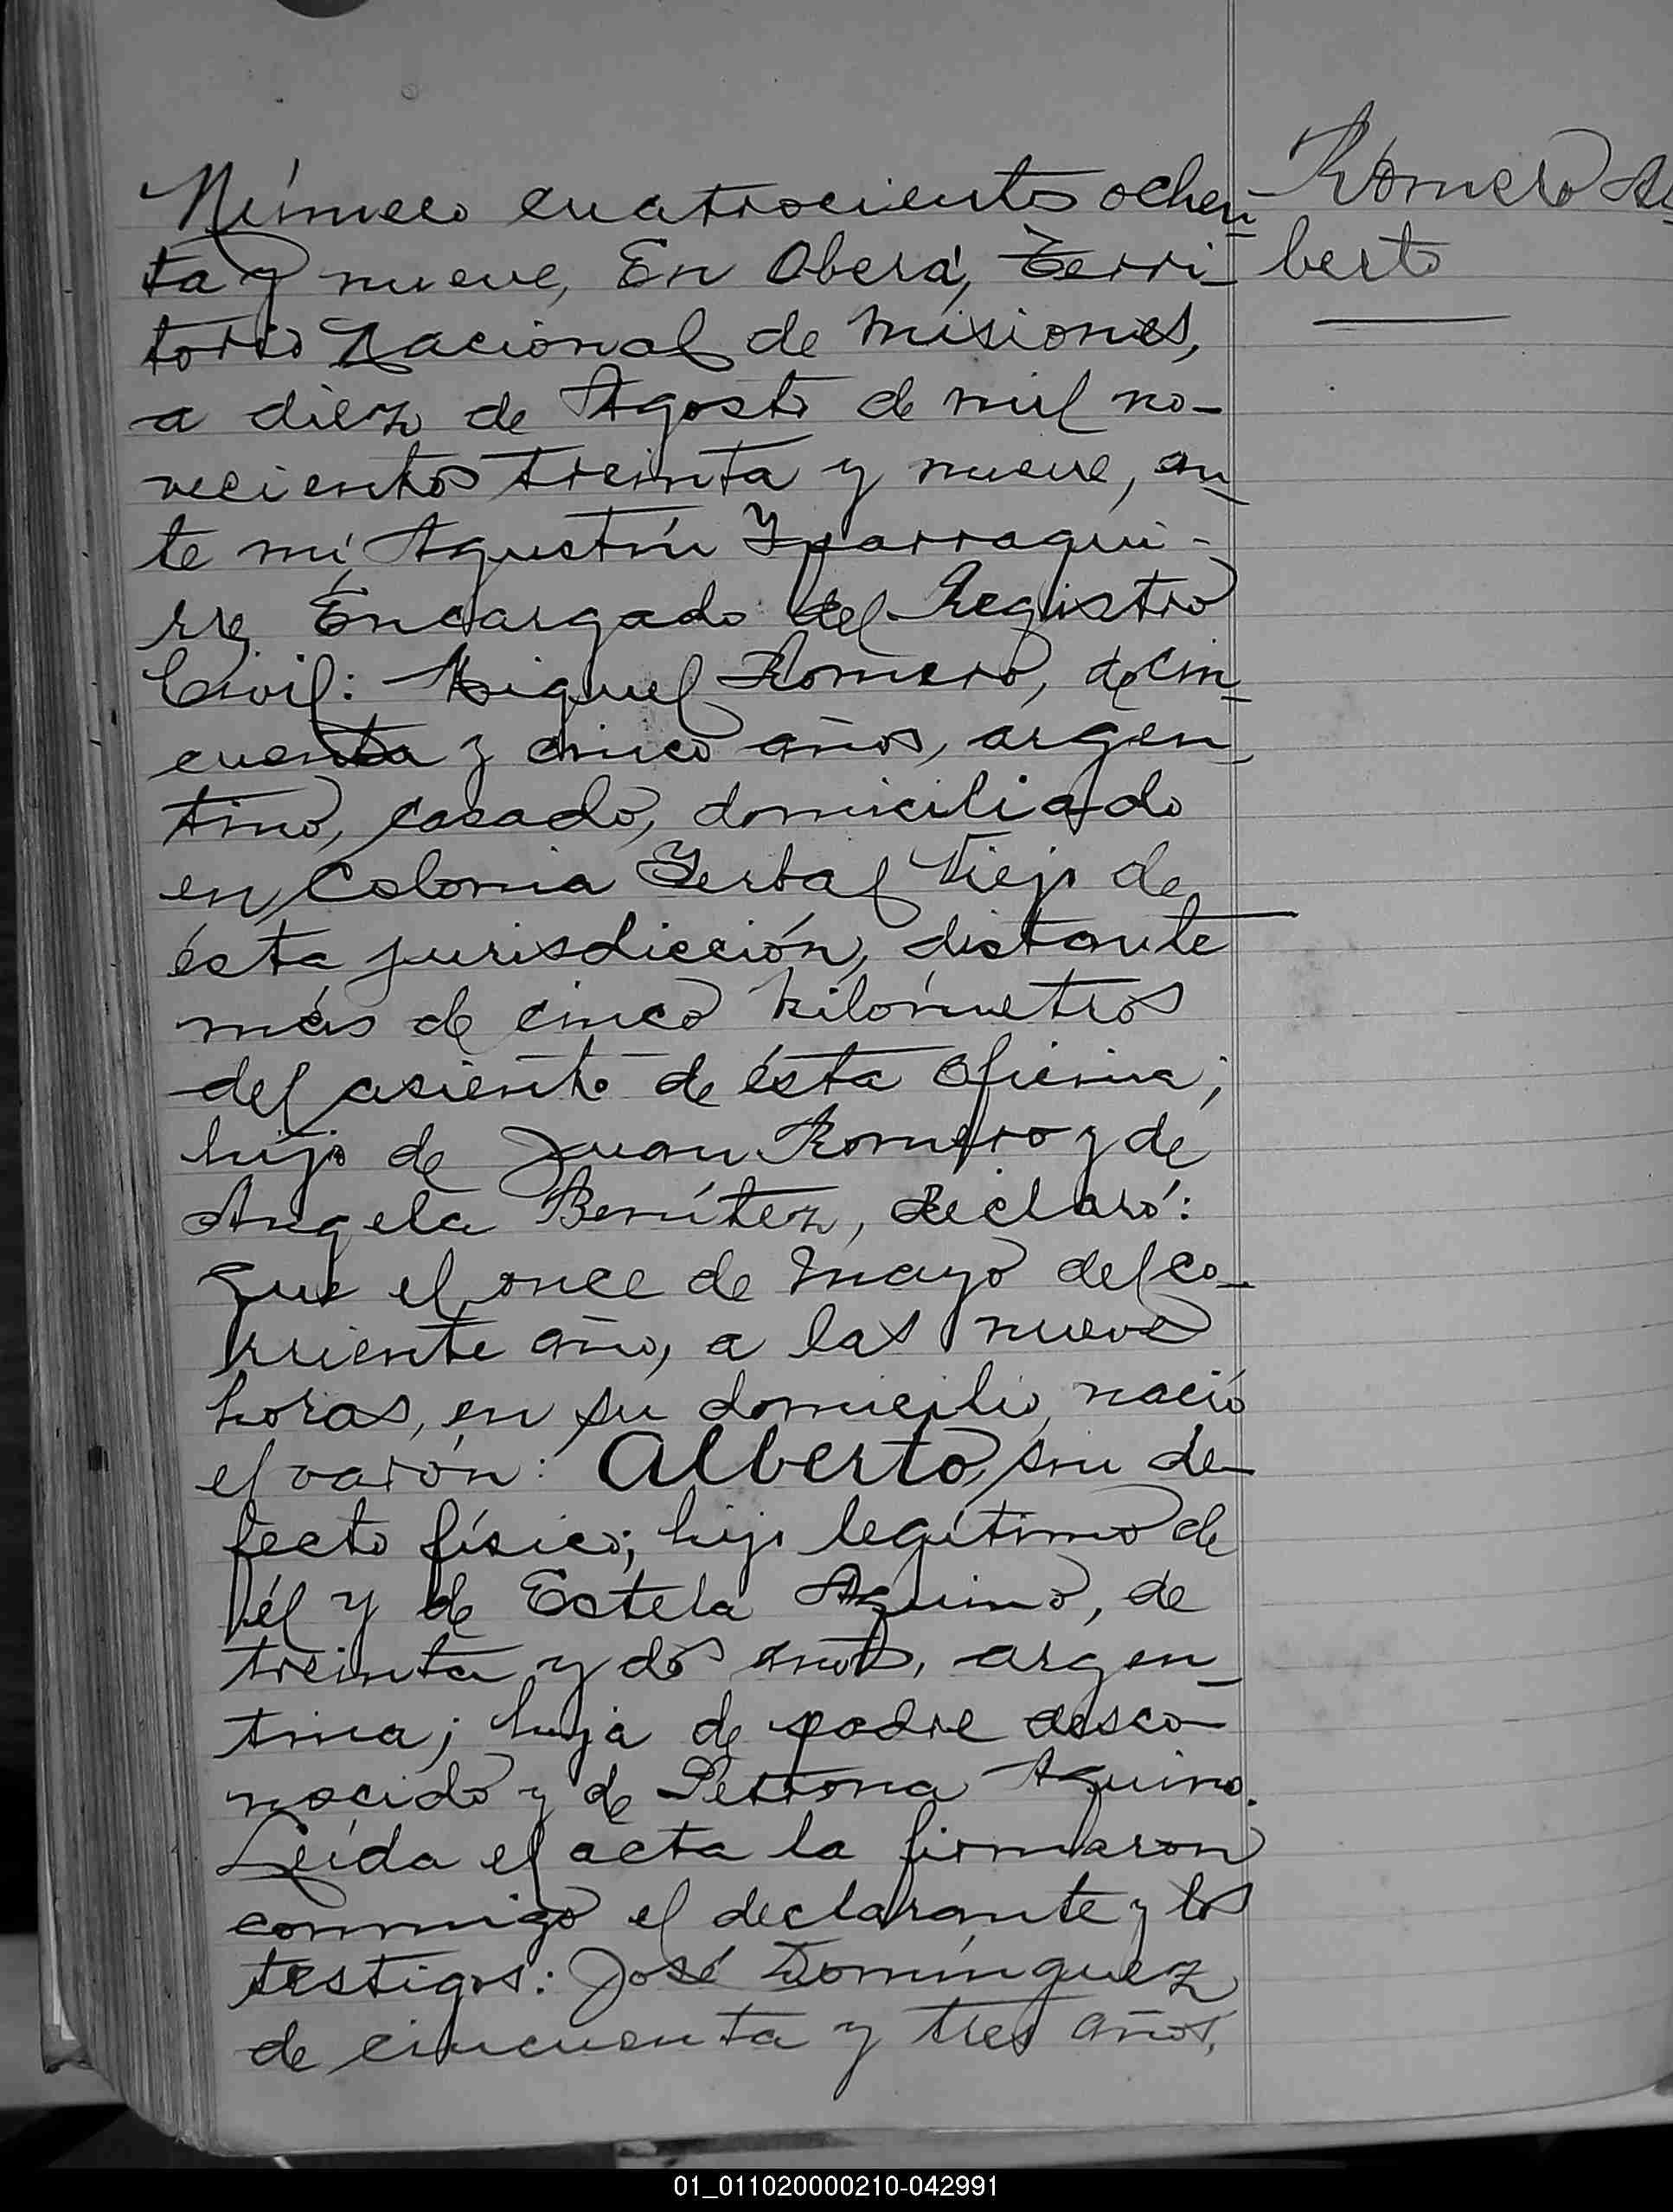 Número cuatrocientos ochen-
ta y nueve, En Oberá, Terri-
torio Nacional de Misiones,
a diez de Agosto de mil no-
vecientos treinta y nueve, an-
te mí, Agustín Yparragui-
rre, Encargado del Registro
Civil: Miguel Romero, de cin-
cuenta y cinco años, argen-
tino, casado, domiciliado
en Colonia Yerbal Viejo de
ésta jurisdicción, distante
más de cinco kilómetros
del asiento de ésta Oficina;
hijo de Juan Romero y de
Angela Benítez, declaró:
Que el once de Mayo del co-
rriente año, a las nueve
horas, en su domicilio, nació
el varón: Alberto, sin de-
fecto físico; hijo legítimo de
él y de Estela Aquino, de
treinta y dos años, argen-
tina; hija de padre desco-
nocido y de Petrona Aquino.
Leída el acta la firmaron
conmigo el declarante y los
testigos: José Domínguez
de cincuenta y tres años,
Romero Al-
berto
01_011020000210-042991